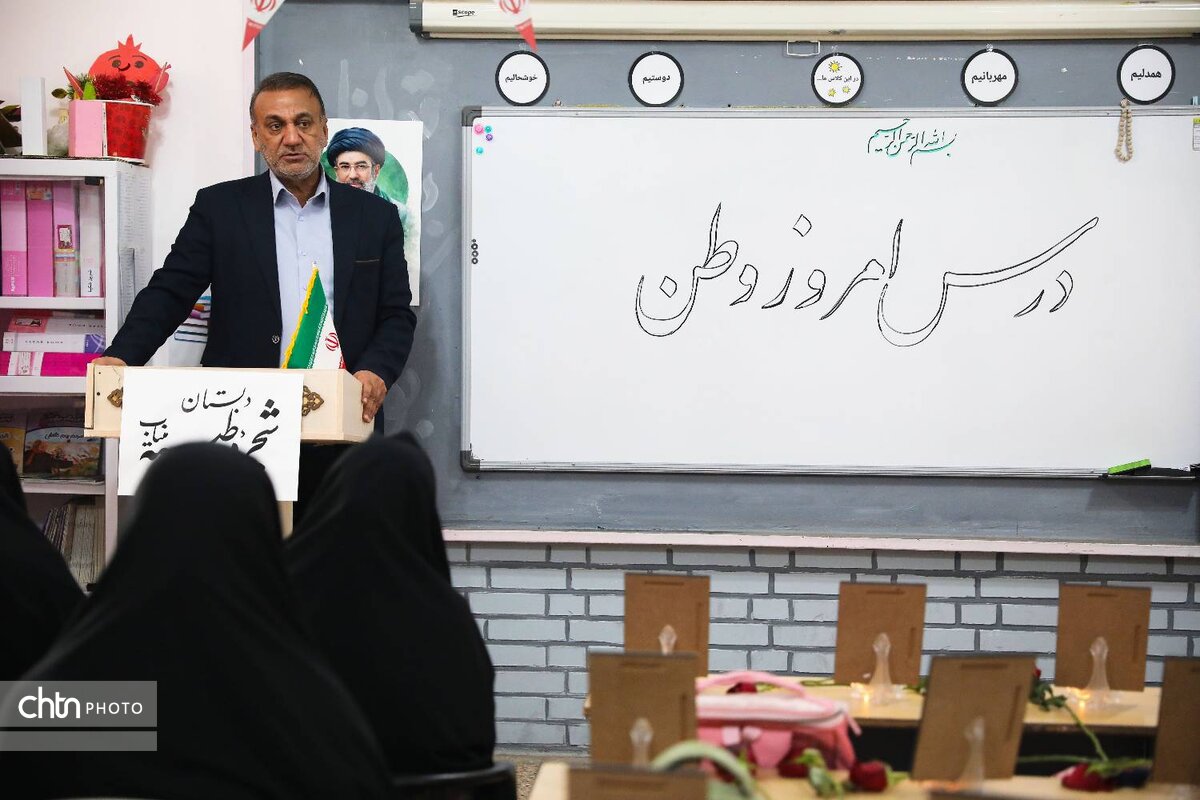 خوشحالیم
دوستیم
در این کلاس ما...
مهربانیم
همدلیم
بسم الله الرحمن الرحیم
درس امروز وطن
دبستان
میناب
chtn PHOTO